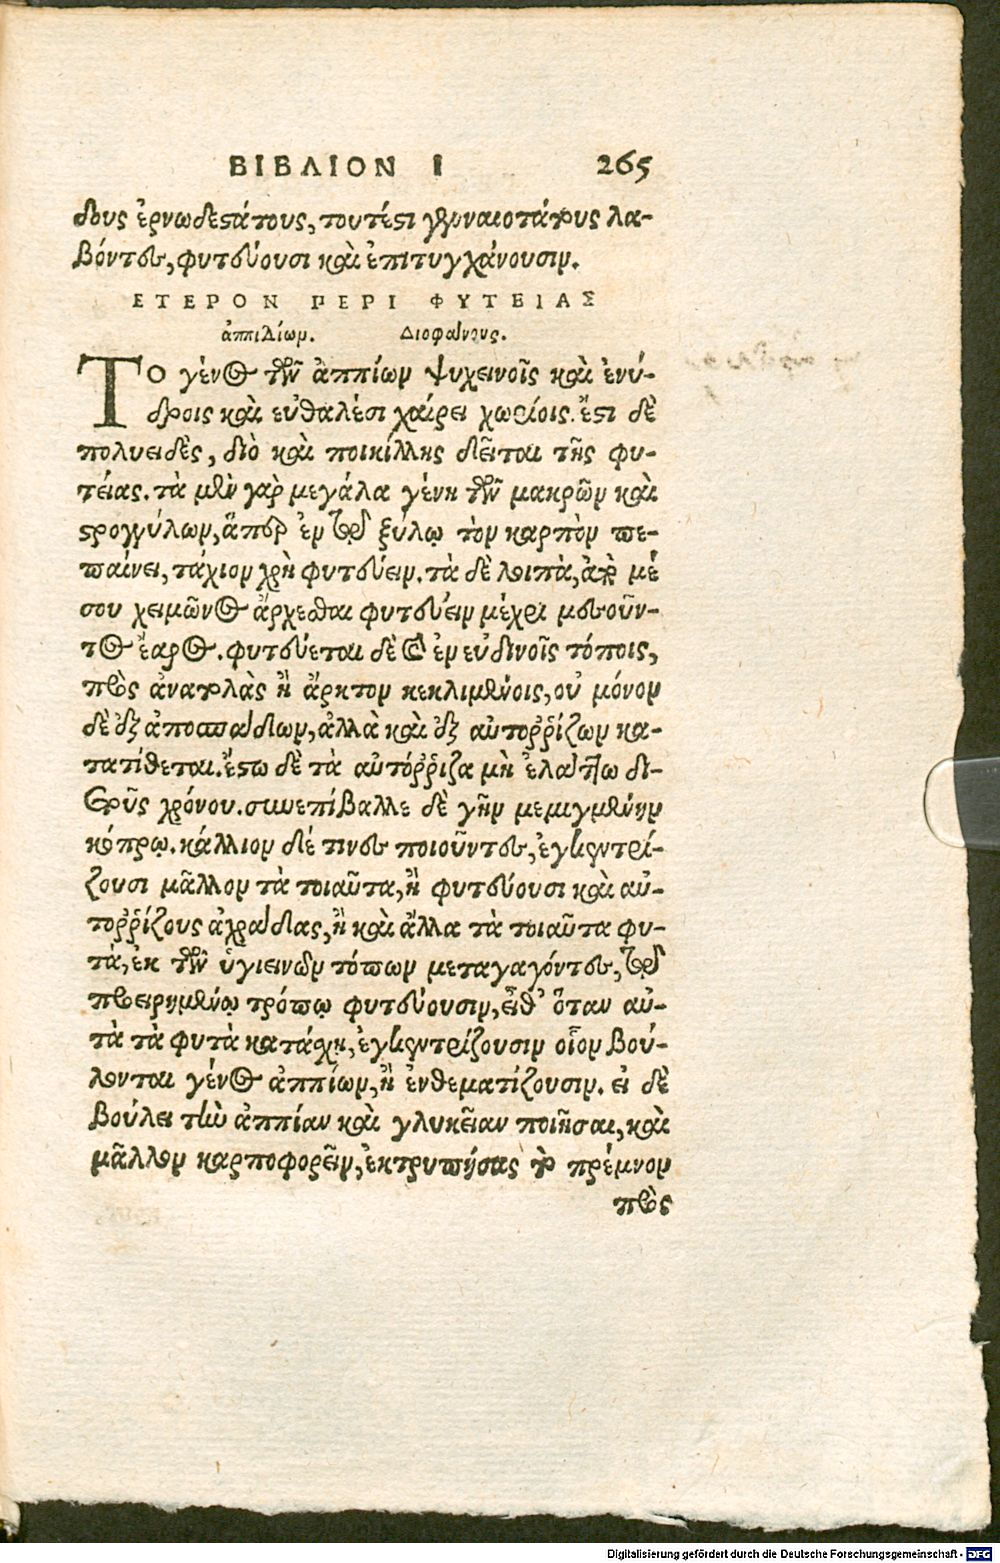 ΒΙΒΛΙΟΝ Ι 265
δους ἐρνωδεστάτους, τουτέστι γονιμωτάτους λα-
βόντες, φυτεύουσι καὶ ἐπιτυγχάνουσιν.
ΕΤΕΡΟΝ ΠΕΡΙ ΦΥΤΕΙΑΣ
ἀππιδίων. Διοφάνους.
ΤΟ γένος τῶν ἀππίων ψυχεινοῖς καὶ ἐνύ-
δροις καὶ εὐθαλέσι χαίρει χωρίοις. ἔστι δὲ
πολυειδὲς, διὸ καὶ ποικίλλης δεῖται τῆς φυ-
τείας. τὰ μὲν γὰρ μεγάλα γένη τῶν μακρῶν καὶ
στρογγύλων, ἅπερ ἐν τῷ ξύλῳ τὸν καρπὸν πε-
παίνει, τάχιον χρὴ φυτεύειν. τὰ δὲ λοιπὰ, ἀπὸ μέ
σου χειμῶνος ἄρχεσθαι φυτεύειν μέχρι μεσοῦν-
τος ἔαρος. φυτεύεται δὲ καὶ ἐν εὐδινοῖς τόποις,
πρὸς ἀνατολὰς ἢ ἄρκτον κεκλιμένοις, οὐ μόνον
δὲ ἐξ ἀποσπαδίων, ἀλλὰ καὶ ἐξ αὐτοῤῥίζων κα-
τατίθεται. ἔστω δὲ τὰ αὐτόῤῥιζα μὴ ἐλάττω δι-
ετοῦς χρόνου. συνεπίβαλλε δὲ γῆν μεμιγμένην
κόπρῳ. κάλλιον δέ τινες ποιοῦντες, ἐγκεντρί-
ζουσι μᾶλλον τὰ τοιαῦτα, ἢ φυτεύουσι καὶ αὐ-
τοῤῥίζους ἀχράδας, ἢ καὶ ἄλλα τὰ τοιαῦτα φυ-
τά, ἐκ τῶν ὑγιεινῶν τόπων μεταγαγόντες, τῷ
προειρημένῳ τρόπῳ φυτεύουσιν, εἶθ' ὅταν αὐ-
τὰ τὰ φυτὰ κατάχῃ, ἐγκεντρίζουσιν οἷον βού-
λονται γένος ἀππίων, ἢ ἐνθεματίζουσιν. εἰ δὲ
βούλει τὴν ἀππίαν καὶ γλυκεῖαν ποιῆσαι, καὶ
μᾶλλον καρποφορεῖν, ἐκτρυπήσας τὸ πρέμνον
πρὸς
Digitalisierung gefördert durch die Deutsche Forschungsgemeinschaft - DFG